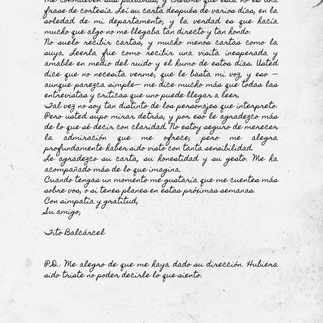 Me conmueven sus palabras, y créame que esta no es una
frase de cortesía. Leí su carta después de varios días, en la
soledad de mi departamento, y la verdad es que hacía
mucho que algo no me llegaba tan directo y tan hondo.
No suelo recibir cartas, y mucho menos cartas como la
suya. Leerla fue como recibir una visita inesperada y
amable en medio del ruido y el humo de estos días. Usted
dice que no necesita verme, que le basta mi voz, y eso —
aunque parezca simple— me dice mucho más que todas las
entrevistas y críticas que uno puede llegar a leer.
Tal vez no soy tan distinto de los personajes que interpreto.
Pero usted supo mirar detrás, y por eso le agradezco más
de lo que sé decir con claridad. No estoy seguro de merecer
la admiración que me ofrece, pero me alegra
profundamente haber sido visto con tanta sensibilidad.
Le agradezco su carta, su honestidad y su gesto. Me ha
acompañado más de lo que imagina.
Cuando tengas un momento me gustaría que me cuentes más
sobre vos, o si tenes planes en estas próximas semanas.
Con simpatía y gratitud,
Su amigo,
Tito Balcárcel
P.D.: Me alegro de que me haya dado su dirección. Hubiera
sido triste no poder decirle lo que siento.